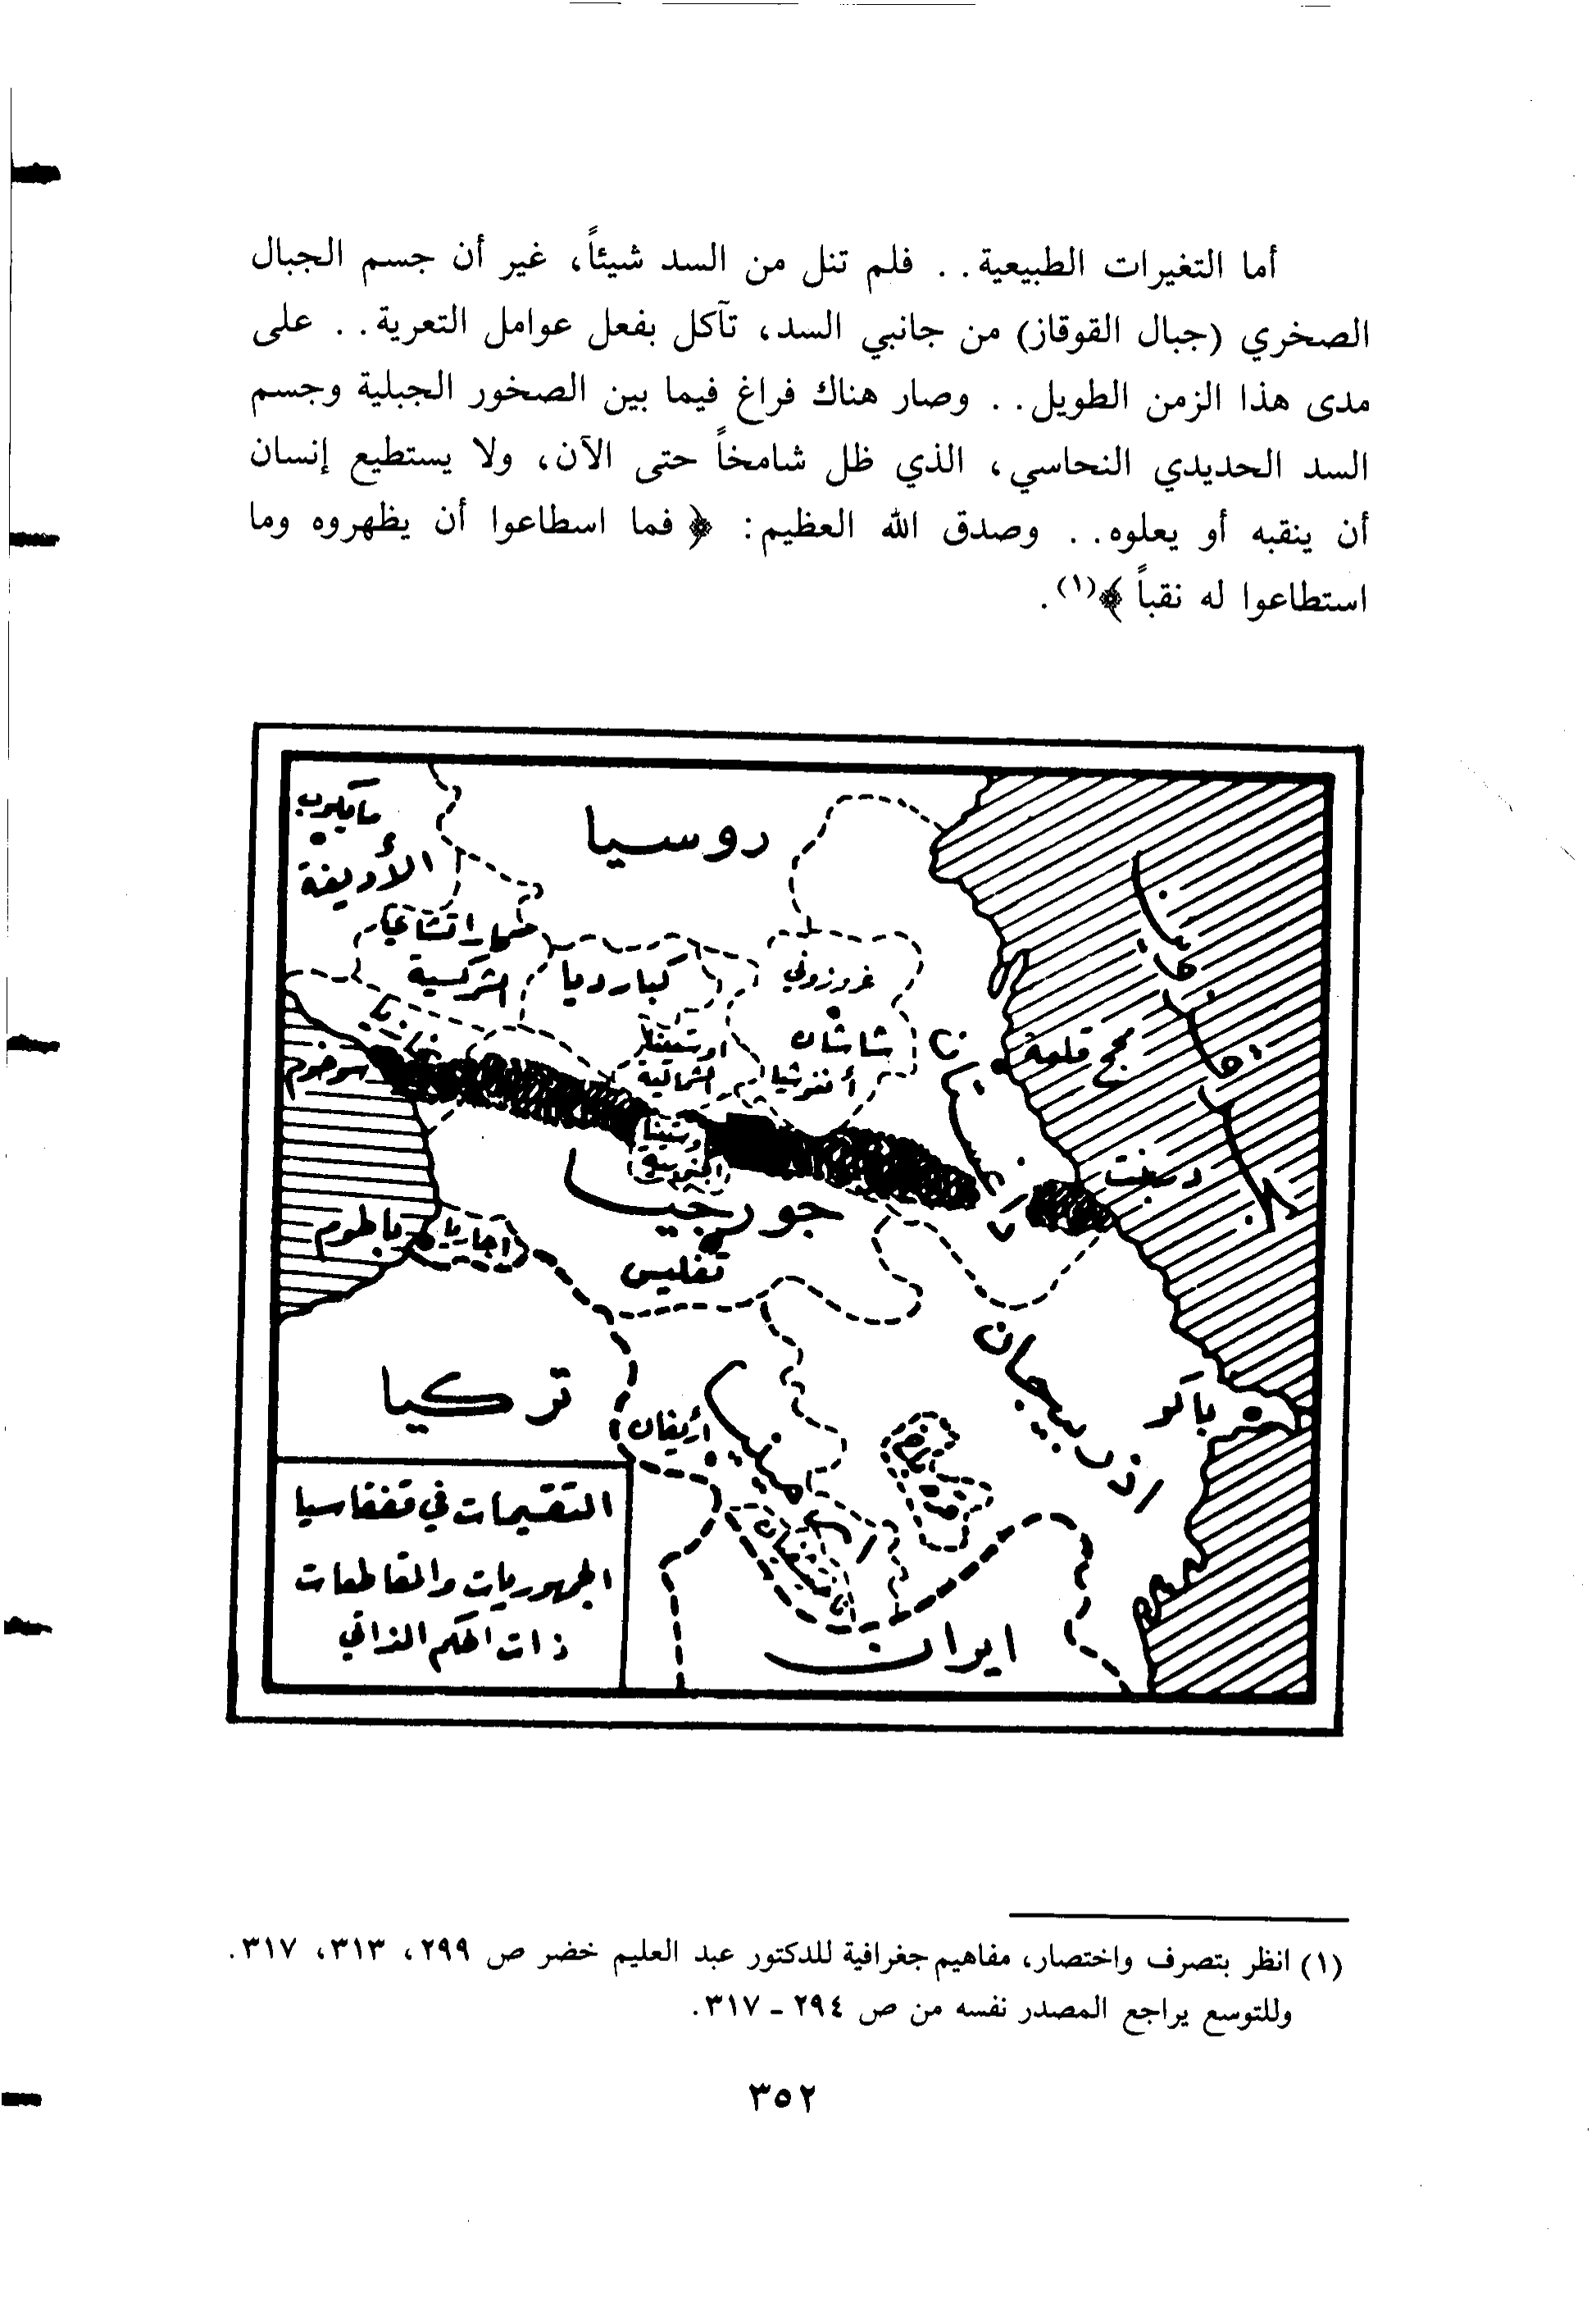 أما التغيرات الطبيعية.. فلم تنل من السد شيئاً، غير أن جسم الجبال
الصخري (جبال القوقاز) من جانبي السد، تآكل بفعل عوامل التعرية.. على
مدى هذا الزمن الطويل.. وصار هناك فراغ فيما بين الصخور الجبلية وجسم
السد الحديدي النحاسي، الذي ظل شامخاً حتى الآن، ولا يستطيع إنسان
أن ينقبه أو يعلوه.. وصدق الله العظيم: ﴿ فما اسطاعوا أن يظهروه وما
استطاعوا له نقباً ﴾(١).
روسيا
الشركسية
كبارديا
غروزوني
شاشان
الشمالية
قلعة
سوخوم
الجنوبية
جورجيا
باطوم
اجاريا
تفليس
تركيا
باكو
اذربيجان
ايران
التقسيمات في قفقاسيا
الجمهوريات والمقاطعات
ذات الحكم الذاتي
(١) انظر بتصرف واختصار، مفاهيم جغرافية للدكتور عبد العليم خضر ص ٢٩٩، ٣١٣، ٣١٧.
وللتوسع يراجع المصدر نفسه من ص ٢٩٤ - ٣١٧.
٣٥٢